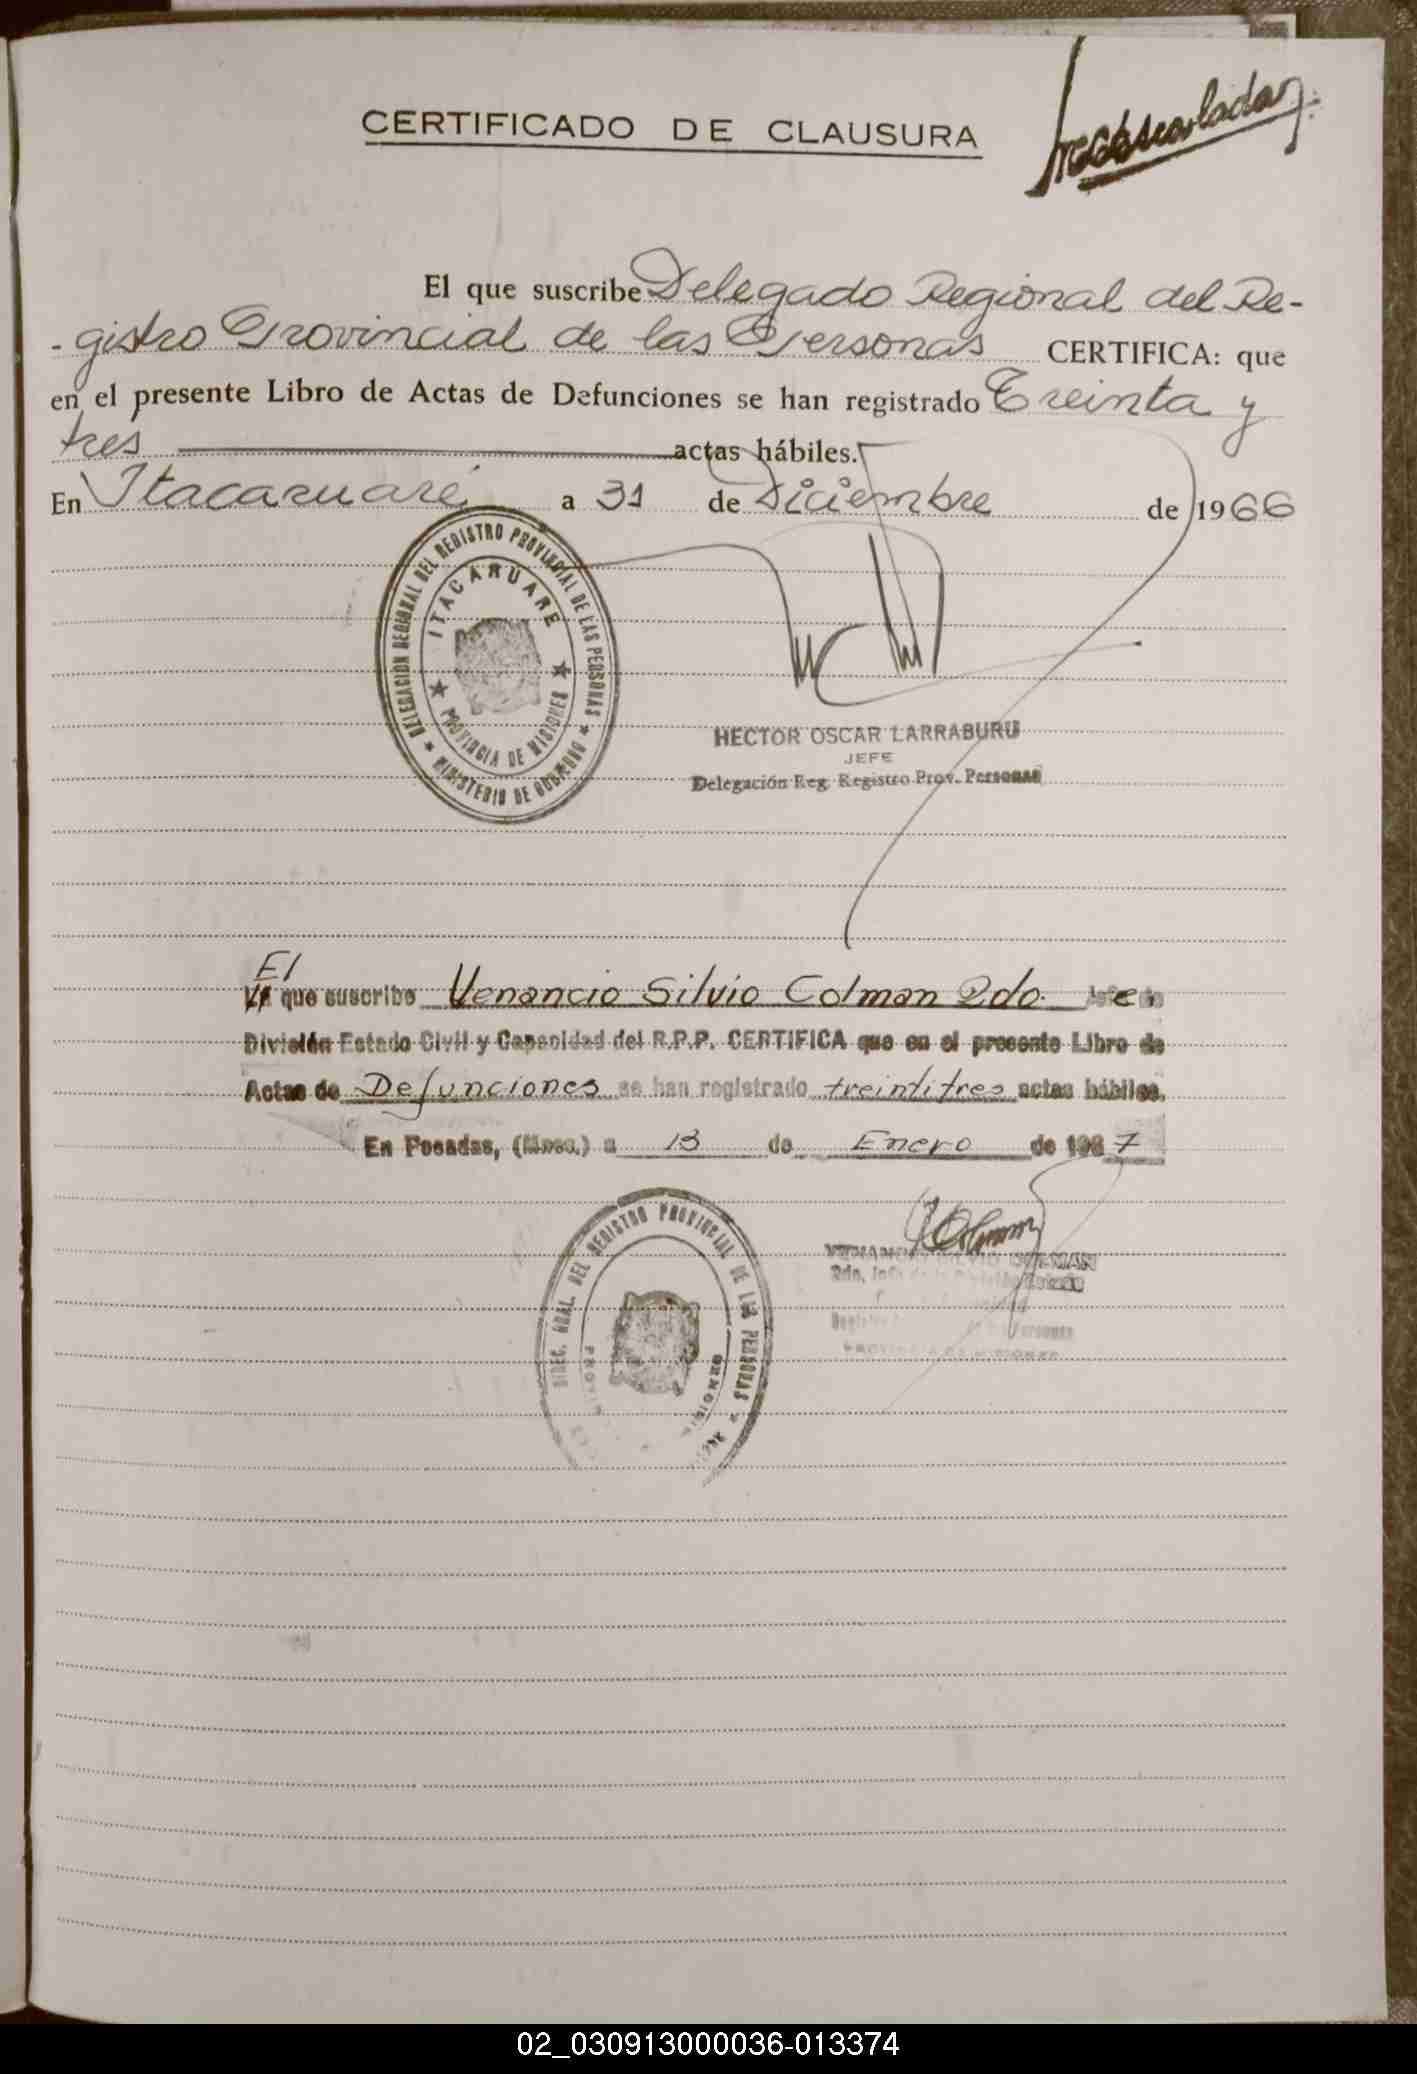 CERTIFICADO DE CLAUSURA
El que suscribe Delegado Regional del Re-
-gistro Provincial de las Personas CERTIFICA: que
en el presente Libro de Actas de Defunciones se han registrado Treinta y
tres actas hábiles.
En Itacaruaré a 31 de Diciembre de 1966
DELEGACION REGIONAL DEL REGISTRO PROVINCIAL DE LAS PERSONAS
ITACARUARE
PROVINCIA DE MISIONES
MINISTERIO DE GOBIERNO
HECTOR OSCAR LARRABURU
JEFE
Delegación Reg. Registro Prov. Personas
El
que suscribe Venancio Silvio Colman 2do. Jefe
División Estado Civil y Capacidad del R.P.P. CERTIFICA que en el presente Libro de
Actas de Defunciones se han registrado treintitres actas hábiles.
En Posadas, (Mnes.) a 13 de Enero de 1967
DIREC. GRAL. DEL REGISTRO PROVINCIAL DE LAS PERSONAS
VENANCIO SILVIO COLMAN
2do. Jefe de la División Estado
Personas
PROVINCIA DE MISIONES
02_030913000036-013374